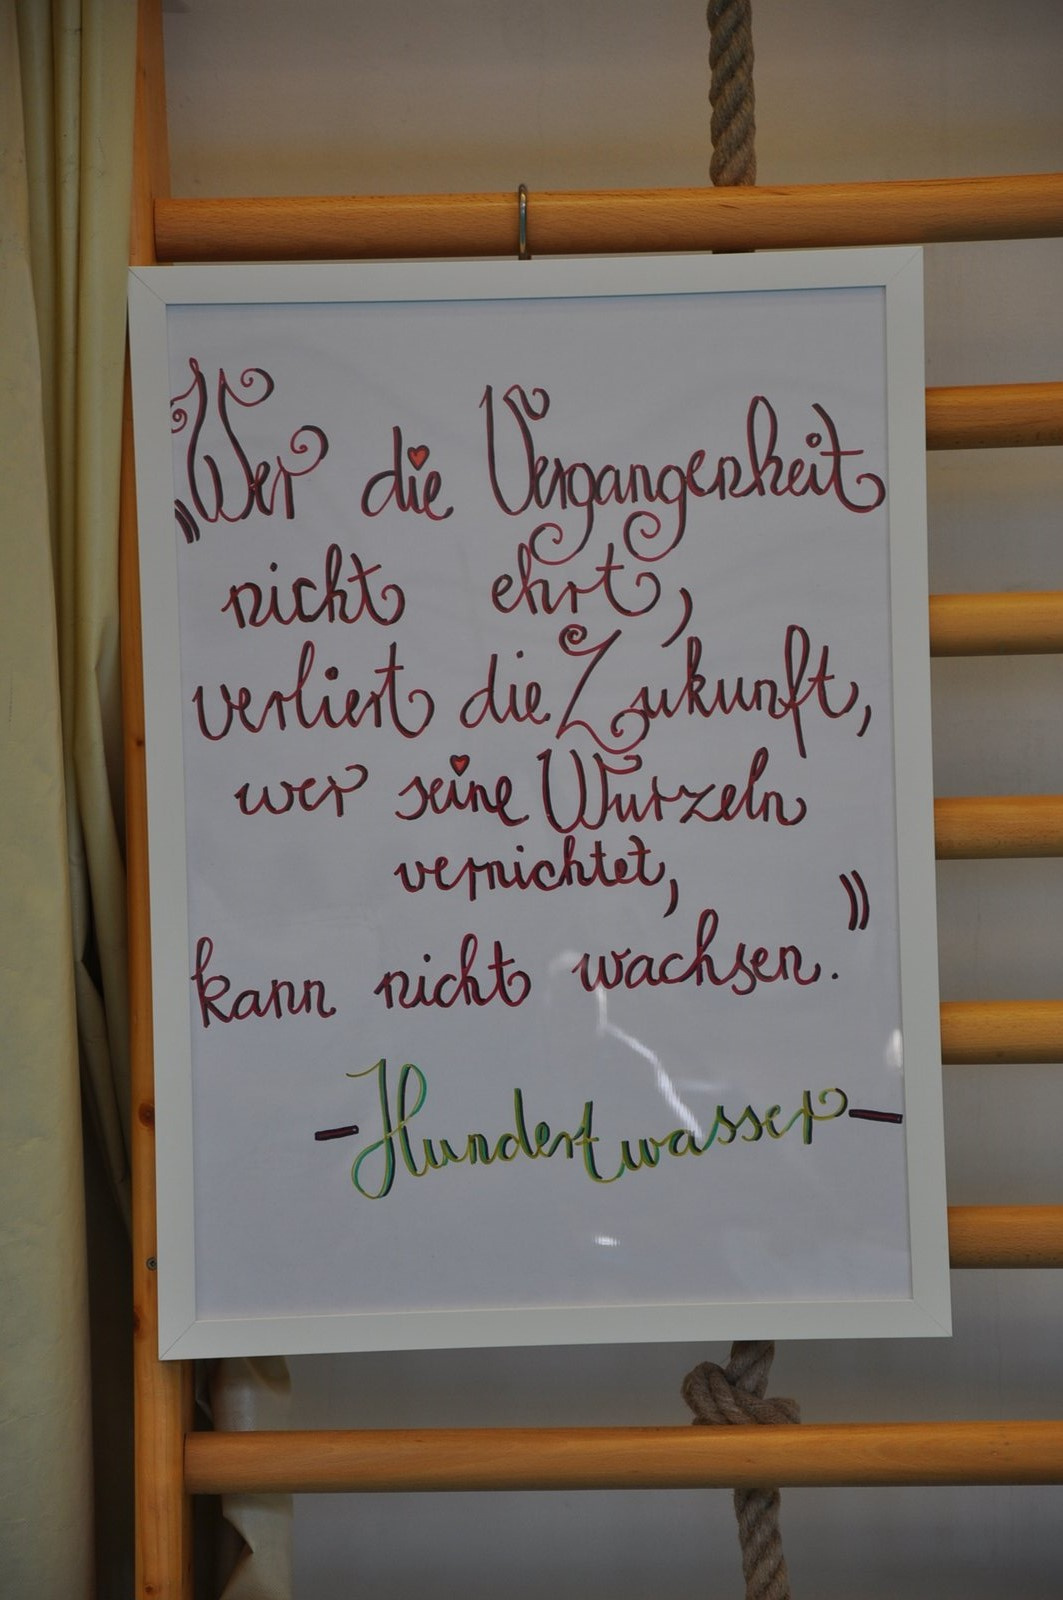 „Wer die Vergangenheit
nicht ehrt,
verliert die Zukunft,
wer seine Wurzeln
vernichtet,
kann nicht wachsen."
- Hundertwasser -